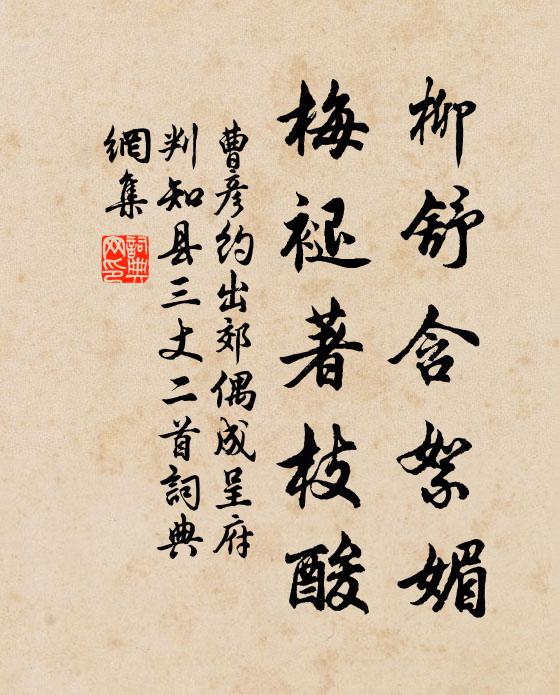 柳舒含絮媚
梅褪著枝酸
曹彦约出郊偶成呈府
判知县三丈二首詞典
網集
詞典網印